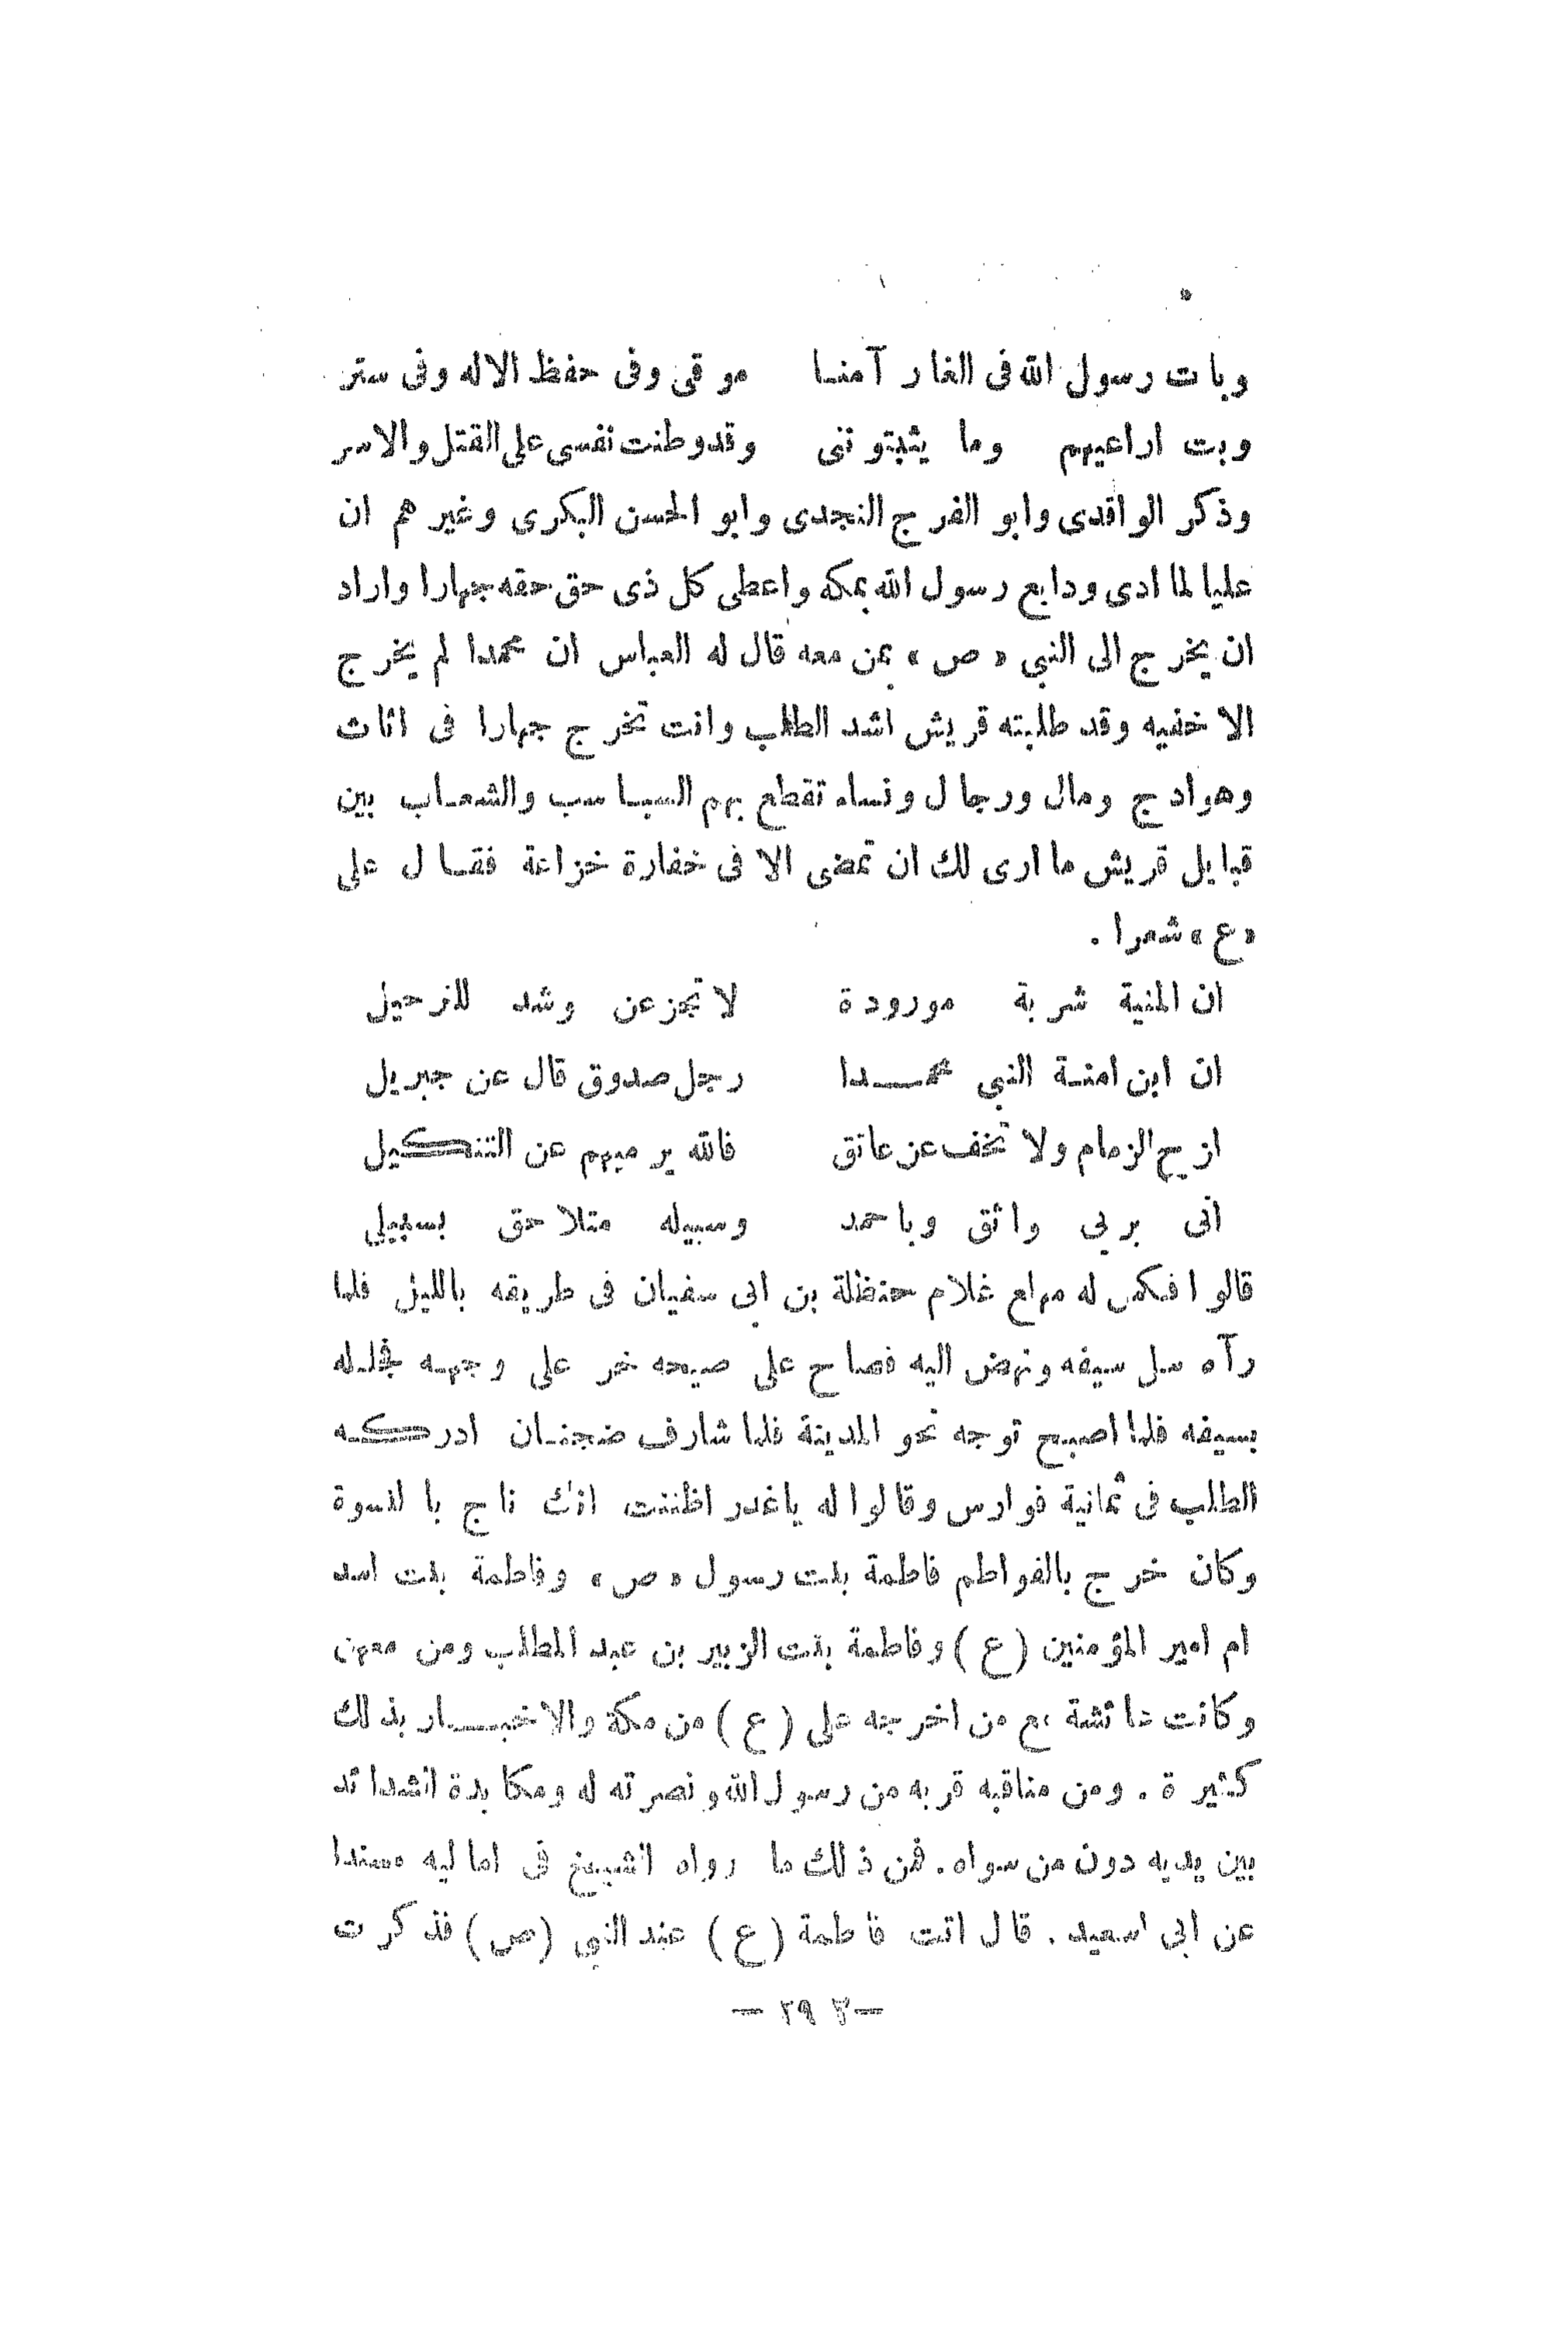 وبات رسول الله فى الغار آمنا موقى وفى حفظ الاله وفى ستر
وبت اراعيهم وما يثبتوننى وقد وطنت نفسى على القتل والاسر
وذكر الواقدى وابو الفرج النجدى وابو الحسن البكرى وغيرهم ان
عليا لما ادى ودايع رسول الله بمكه واعطى كل ذى حق حقه جهارا واراد
ان يخرج الى النبي «ص» بمن معه قال له العباس ان محمدا لم يخرج
الا خفيه وقد طلبته قريش اشد الطلب وانت تخرج جهارا فى اثاث
وهوادج ومال ورجال ونساء تقطع بهم السباسب والشعاب بين
قبايل قريش ما ارى لك ان تمضى الا فى خفارة خزاعة فقال على
«ع» شعرا .
ان المنية شربة مورودة لا تجزعن وشد للترحيل
ان ابن امنة النبي محمدا رجل صدوق قال عن جبريل
ازيح الزمام ولا تخف عن عاتق فالله يرميهم عن التنكيل
انى بربى واثق وباحمد وسبيله متلاحق بسبيلى
قالوا فكمن له مهلع غلام حنظلة بن ابى سفيان فى طريقه بالليل فلما
رآه سل سيفه ونهض اليه فصاح على صيحه خر على وجهه فجلله
بسيفه فلما اصبح توجه نحو المدينة فلما شارف ضجنان ادركه
الطلب فى ثمانية فوارس وقالوا له ياغدر اظننت انك ناج بالنسوة
وكان خرج بالفواطم فاطمة بنت رسول «ص» وفاطمة بنت اسد
ام امير المؤمنين (ع) وفاطمة بنت الزبير بن عبد المطلب ومن معهن
وكانت عائشة مع من اخرجه على (ع) من مكة والاخبار بذلك
كثيرة . ومن مناقبه قربه من رسول الله ونصرته له ومكابدة الشدائد
بين يديه دون من سواه . فمن ذلك ما رواه الشيخ فى اماليه مسندا
عن ابى سعيد . قال اتت فاطمة (ع) عند النبى (ص) فذكرت
— ٢٩٣ —